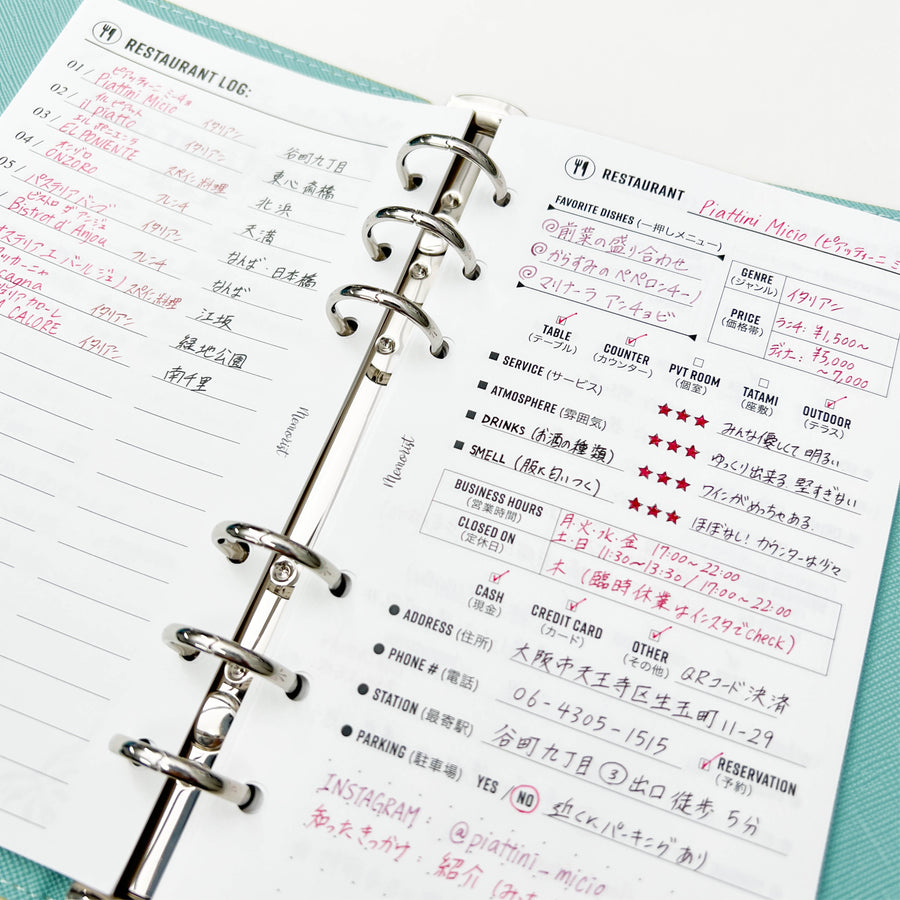 RESTAURANT LOG:
01/ ピアッティーニ ミーチョ
Piattini Micio イタリアン 谷町九丁目
02/ イル ピアット
il piatto イタリアン 東心斎橋
03/ エル ポニエンテ
EL PONIENTE スペイン料理 北浜
04/ オンゾロ
ONZORO フレンチ 天満
05/ パステリアバンブ イタリアン なんば・日本橋
ビストロ ダ アンジュ
Bistrot d Anjou フレンチ なんば
オステリア エ バール ジェノ スペイン料理 江坂
cagna イタリアン 緑地公園
CALORE イタリアン 南千里
Memorist
Memorist
RESTAURANT Piattini Micio (ピアッティーニ ミ
FAVORITE DISHES (一押しメニュー)
@前菜の盛り合わせ
@からすみのペペロンチーノ
@マリナーラ アンチョビ
GENRE (ジャンル) イタリアン
PRICE (価格帯) ランチ: ¥1,500〜
ディナー: ¥5,000
〜7,000
TABLE (テーブル)
COUNTER (カウンター)
PVT ROOM (個室)
TATAMI (座敷)
OUTDOOR (テラス)
SERVICE (サービス) ★★★ みんな優しくて明るい
ATMOSPHERE (雰囲気) ★★★ ゆっくり出来る 堅すぎない
DRINKS (お酒の種類) ★★★ ワインがめっちゃある
SMELL (服に匂いつく) ★★★ ほぼなし! カウンターは少々
BUSINESS HOURS (営業時間) 月・火・水・金 17:00〜22:00
土・日 11:30〜13:30 / 17:00〜22:00
CLOSED ON (定休日) 木 (臨時休業はインスタでcheck)
CASH (現金)
CREDIT CARD (カード)
OTHER (その他) QRコード決済
ADDRESS (住所) 大阪市天王寺区生玉町11-29
PHONE # (電話) 06-4305-1515
RESERVATION (予約)
STATION (最寄駅) 谷町九丁目 ③出口 徒歩5分
PARKING (駐車場) YES / NO 近くにパーキングあり
INSTAGRAM: @piattini_micio
知ったきっかけ: 紹介